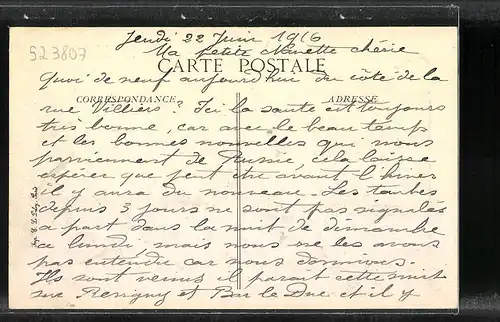 523807
Jeudi 22 Juin 1916
Ma petite Ninette chérie
CARTE POSTALE
quoi de neuf aujourd'hui du côté de la
CORRESPONDANCE ADRESSE
rue Villiers? Ici la santé est toujours
très bonne, car avec le beau temps
et les bonnes nouvelles qui nous
parviennent de Russie, cela laisse
espérer que peut être avant l'hiver
il y aura du nouveau. Les taubes
depuis 3 jours ne sont pas signalés
a part dans la nuit de dimanche
a lundi, mais nous ne les avons
pas entendu car nous dormions.
Ils sont venus il parait cette nuit
sur Revigny et Bar le Duc et il y